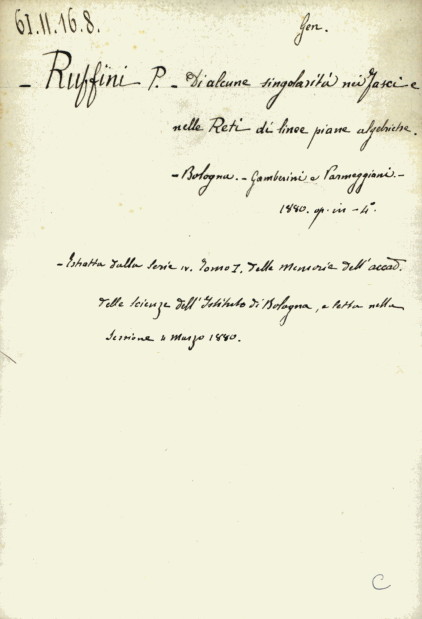 61.11.16.8.
Gen.
- Ruffini P. - Di alcune singolarità nei Fasci e
nelle Reti di linee piane algebriche.
- Bologna. - Gamberini e Parmeggiani. -
1880. op. in - 4°.
- Estratta dalla Serie IV. Tomo I. delle Memorie dell'accad.
delle Scienze dell'Istituto di Bologna, e letta nella
Sessione 11 Marzo 1880.
C